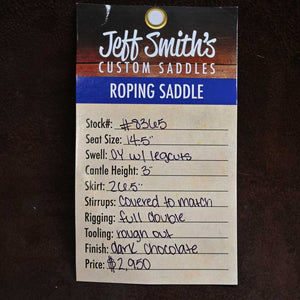 Jeff Smith's
CUSTOM SADDLES
ROPING SADDLE
Stock#: #8365
Seat Size: 14.5"
Swell: OY w/ legcuts
Cantle Height: 3"
Skirt: 26.5"
Stirrups: Covered to match
Rigging: full double
Tooling: rough out
Finish: dark chocolate
Price: $2,950